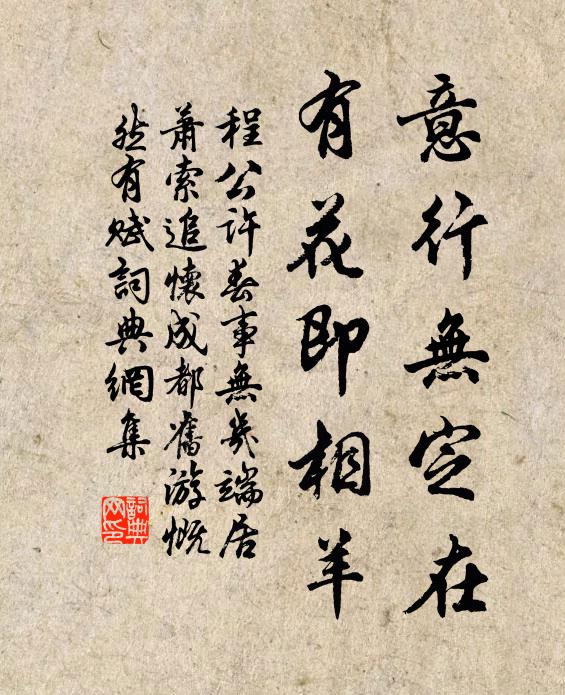 意行無定在
有花即相羊
程公許春事無幾端居
萧索追懷成都舊游慨
然有赋詞典網集
詞典網印